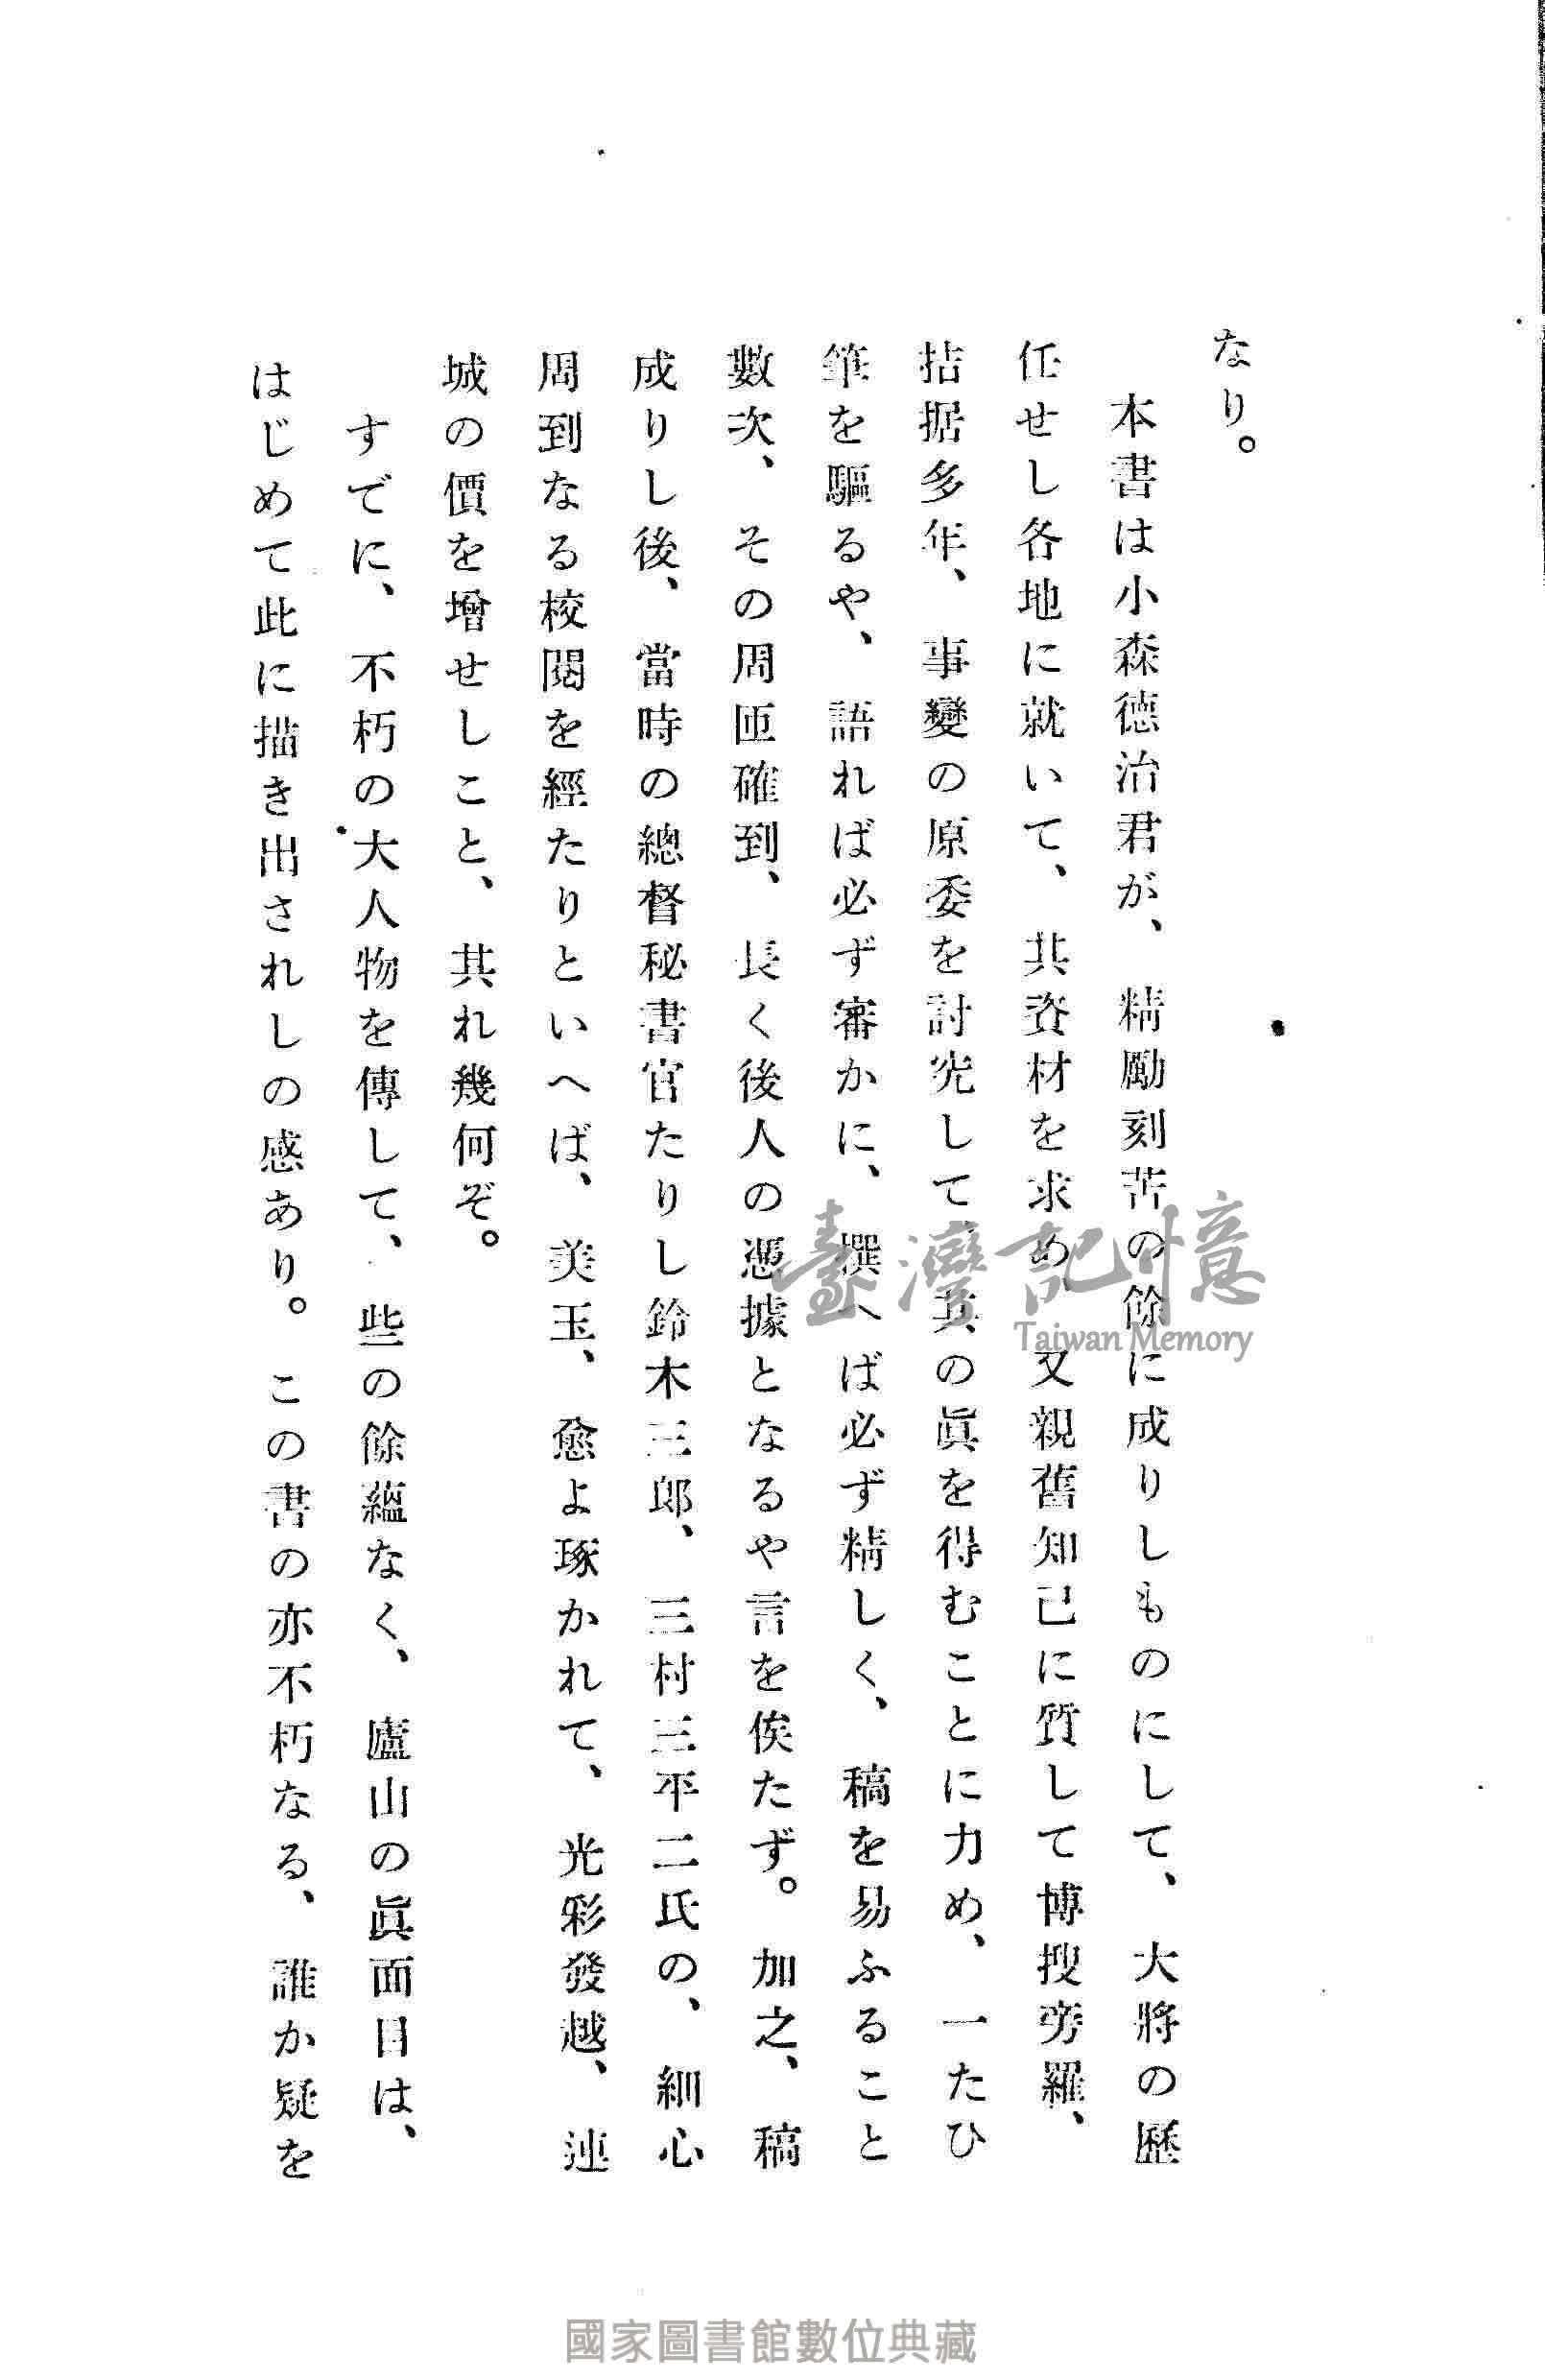 なり。
本書は小森德治君が、精勵刻苦の餘に成りしものにして、大將の歷
任せし各地に就いて、其資材を求め、又親舊知己に質して博搜旁羅、
拮据多年、事變の原委を討究して、其の眞を得むことに力め、一たひ
筆を驅るや、語れば必ず審かに、撰へば必ず精しく、稿を易ふること
數次、その周匝確到、長く後人の憑據となるや言を俟たず。加之、稿
成りし後、當時の總督秘書官たりし鈴木三郎、三村三平二氏の、細心
周到なる校閱を經たりといへば、美玉、愈よ琢かれて、光彩發越、連
城の價を增せしこと、其れ幾何ぞ。
すでに、不朽の大人物を傳して、些の餘蘊なく、廬山の眞面目は、
はじめて此に描き出されしの感あり。この書の亦不朽なる、誰か疑を
臺灣記憶
Taiwan Memory
國家圖書館數位典藏